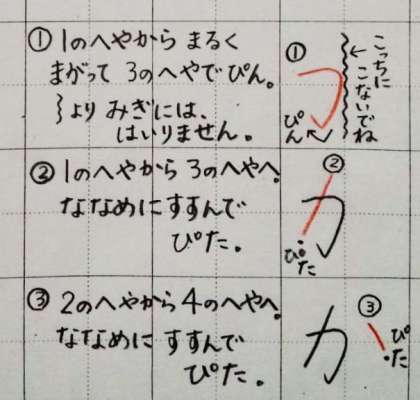 ① 1のへやから まるく
まがって 3のへやでぴん。
⌇より みぎには、
はいりません。
①
こっちに
こないでね
ぴん
② 1のへやから 3のへやへ。
ななめにすすんで
ぴた。
②
カ
ぴた
③ 2のへやから 4のへやへ。
ななめに すすんで
ぴた。
③
カ
ぴた